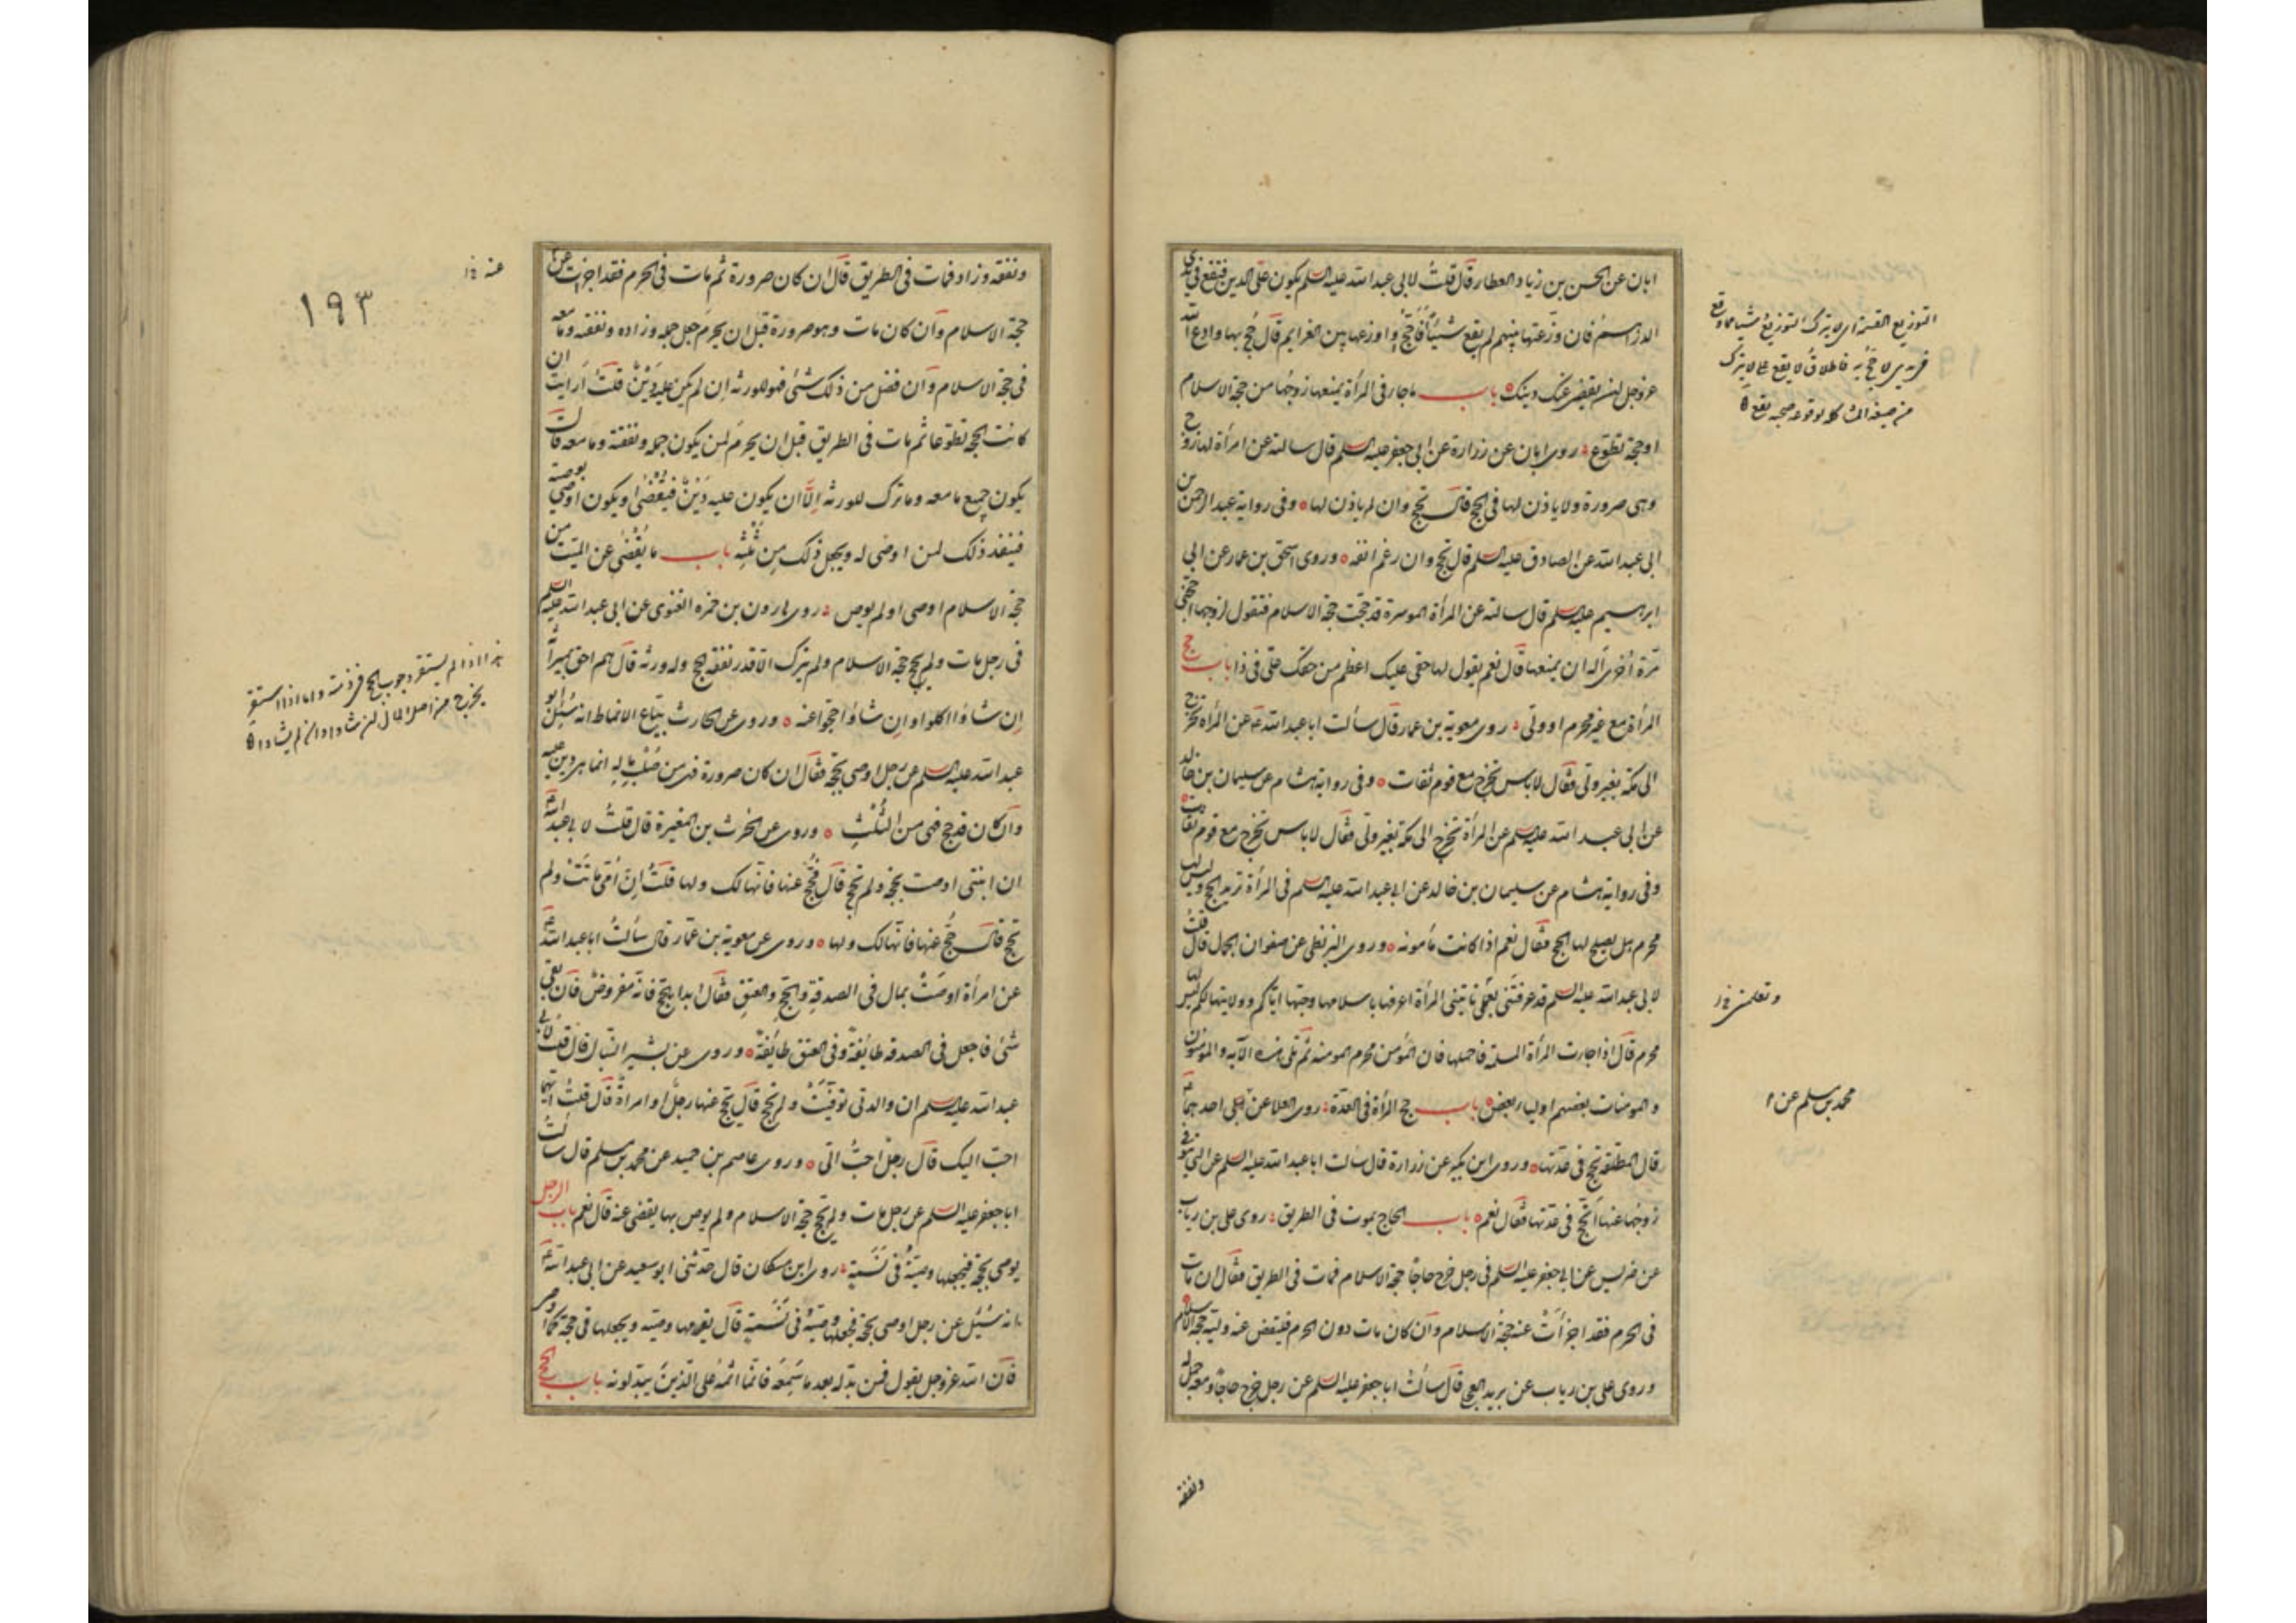 ابان عن الحسن بن زياد العطار قال قلت لابي عبد الله عليه السلم يكون علي الدين فتقع في يدي
الدراهم فان وزعتها بينهم لم يقع شيئا أفأحج بها او اوزعها بين الغرايم قال حج بها وادع الله
عز وجل ان يقضي عنك دينك باب ما جاء في المرأة يمنعها زوجها من حجة الاسلام
او حجة تطوع روى ابان عن زرارة عن ابي جعفر عليه السلم قال سالته عن امرأة لها زوج
وهي صرورة ولا ياذن لها في الحج قال تحج وان لم ياذن لها وفي رواية عبد الرحمن بن
ابي عبد الله عن الصادق عليه السلم قال تحج وان رغم انفه وروى اسحق بن عمار عن ابي
ابرهيم عليه السلم قال سالته عن المرأة الموسرة قد حجت حجة الاسلام فتقول لزوجها احجني
مرة اخرى أله ان يمنعها قال نعم يقول لها حقي عليك اعظم من حقك علي في ذا باب حج
المرأة مع غير محرم او ولي روى معوية بن عمار قال سألت ابا عبد الله ع عن المرأة تخرج
الى مكة بغير ولي فقال لا باس تخرج مع قوم ثقات وفي رواية هشام عن سليمان بن خالد
عن ابي عبد الله عليه السلم عن المرأة تخرج الى مكة بغير ولي فقال لا باس تخرج مع قوم ثقات
وفي رواية هشام عن سليمان بن خالد عن ابي عبد الله عليه السلم في المرأة تريد الحج وليس لها
محرم هل يصلح لها الحج فقال نعم اذا كانت مأمونة وروى البزنطي عن صفوان الجمال قال قلت
لابي عبد الله عليه السلم قد عرفتني بعملي تأتيني المرأة اعرفها باسلامها وحبها اياكم وولايتها لكم ليس لها
محرم قال اذا جاءت المرأة المسلمة فاحملها فان المؤمن محرم المومنة ثم تلى هذه الآية والمومنون
والمومنات بعضهم اولياء بعض باب حج المرأة في العدة روى العلا عن احدهما ع
قال المطلقة تحج في عدتها وروى ابن بكير عن زرارة قال سألت ابا عبد الله عليه السلم عن التي توفي
زوجها عنها أتحج في عدتها فقال نعم باب الحاج يموت في الطريق روى علي بن رياب
عن ضريس عن ابي جعفر عليه السلم في رجل خرج حاجا حجة الاسلام فمات في الطريق فقال ان مات
في الحرم فقد اجزأت عنه حجة الاسلام وان كان مات دون الحرم فليقض عنه وليه حجة الاسلام
وروى علي بن رياب عن بريد العجلي قال سألت ابا جعفر عليه السلم عن رجل خرج حاجا ومعه جمل له
ونفقه
التوزيع القسمة اي لا يترك التوزيع شيئا مما وقع
في يدي لا حج به
وتعلمني خ
محمد بن مسلم عن
ونفقه وزاد فمات في الطريق قال ان كان صرورة ثم مات في الحرم فقد اجزات عن
حجة الاسلام وان كان مات وهو صرورة قبل ان يحرم جعل جمله وزاده ونفقته وما معه
في حجة الاسلام وان فضل من ذلك شئ فهو للورثة ان لم يكن عليه دين قلت أرايت ان
كانت الحجة تطوعا ثم مات في الطريق قبل ان يحرم لمن يكون جمله ونفقته وما معه قال
يكون جميع ما معه وما ترك للورثة الا ان يكون عليه دين فيقضى او يكون اوصى بوصية
فينفذ ذلك لمن اوصى له ويجعل ذلك من ثلثه باب ما يقضى عن الميت من
حجة الاسلام اوصى او لم يوص روى هارون بن حمزه الغنوي عن ابي عبد الله عليه السلم
في رجل مات ولم يحج حجة الاسلام ولم يترك الا قدر نفقة الحج وله ورثة قال هم احق بميراثه
ان شاؤا اكلوا وان شاؤا حجوا عنه وروى عن الحارث بياع الانماط انه سئل ابو
عبد الله عليه السلم عن رجل اوصى بحجة فقال ان كان صرورة فهي من صلب ماله انما هي دين عليه
وان كان قد حج فهي من الثلث وروى عن الحرث بن المغيرة قال قلت لابي عبد الله ع
ان ابنتي اوصت بحجة ولم تحج قال فحج عنها فانها لك ولها قلت ان امي ماتت ولم
تحج قال حج عنها فانها لك ولها وروى عن معوية بن عمار قال سألت ابا عبد الله ع
عن امرأة اوصت بمال في الصدقة والحج والعتق فقال ابدا بالحج فانه مفروض فان بقي
شئ فاجعل في الصدقة طائفة وفي العتق طائفة وروى عن بشير النبال قال قلت لابي
عبد الله عليه السلم ان والدتي توفيت ولم تحج قال يحج عنها رجل او امرأة قال قلت ايهما
احب اليك قال رجل احب الي وروى عاصم بن حميد عن محمد بن مسلم قال سألت
ابا جعفر عليه السلم عن رجل مات ولم يحج حجة الاسلام ولم يوص بها يقضى عنه قال نعم باب الرجل
يوصي بحجة فيجعلها وصيه في نسمة روى ابن مسكان قال حدثني ابو سعيد عن ابي عبد الله ع
انه سئل عن رجل اوصى بحجة فجعلها وصيه في نسمة قال يغرمها وصيه ويجعلها في حجة كما اوصى
فان الله عز وجل يقول فمن بدله بعد ما سمعه فانما اثمه على الذين يبدلونه باب الحج
عنه خ
١٩٣
هذا اذا لم يستقر وجوب الحج في ذمته واما اذا استقر
يخرج من اصل المال ان شاءوا وان لم يشاءوا